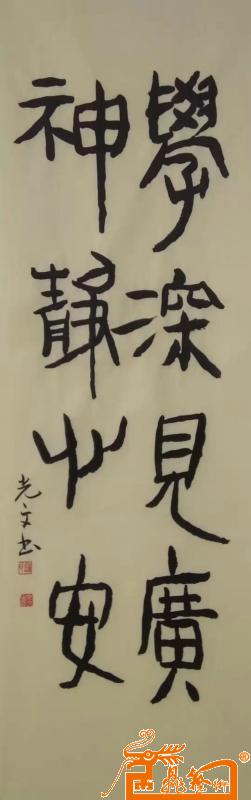 學深見廣
神靜心安
光文书